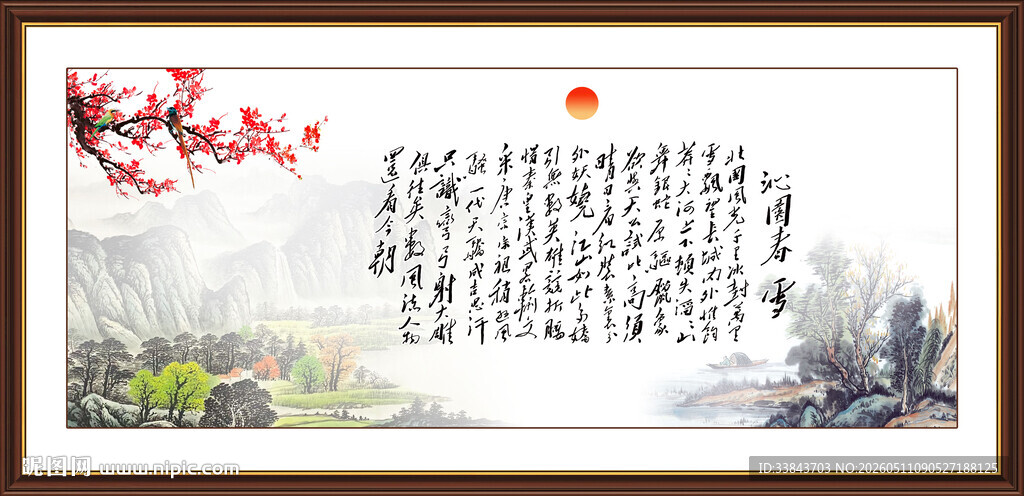 沁園春 雪
北國風光千里冰封萬里
雪飄望長城內外惟餘
莽々大河上下頓失滔々山
舞銀蛇原驅臘象
欲與天公試比高須
晴日看紅裝素裹分
外妖嬈江山如此多嬌
引無數英雄競折腰
惜秦皇漢武略輸文
采唐宗宋祖稍遜風
騷一代天驕成吉思汗
只識彎弓射大雕
俱往矣數風流人物
還看今朝
昵图网 www.nipic.com
ID:33843703 NO:20260511090527188125